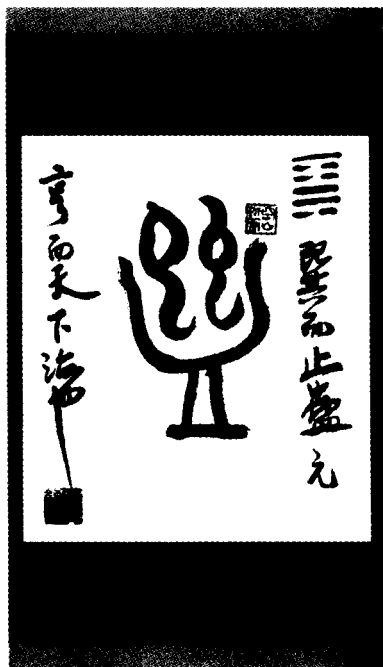 ䷑巽而止蠱元
蠱
亨而天下治也